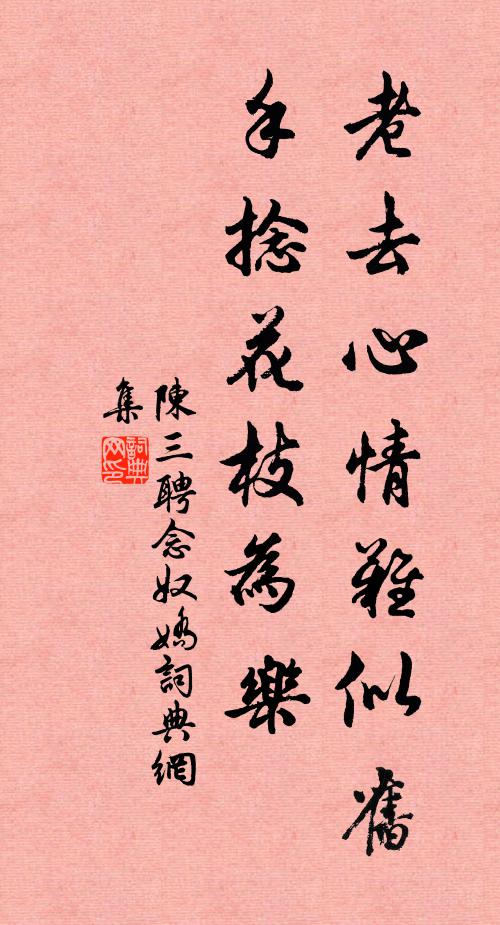 老去心情難似舊
手捻花枝為樂
陳三聘念奴嬌詞典網
集
詞典
网印